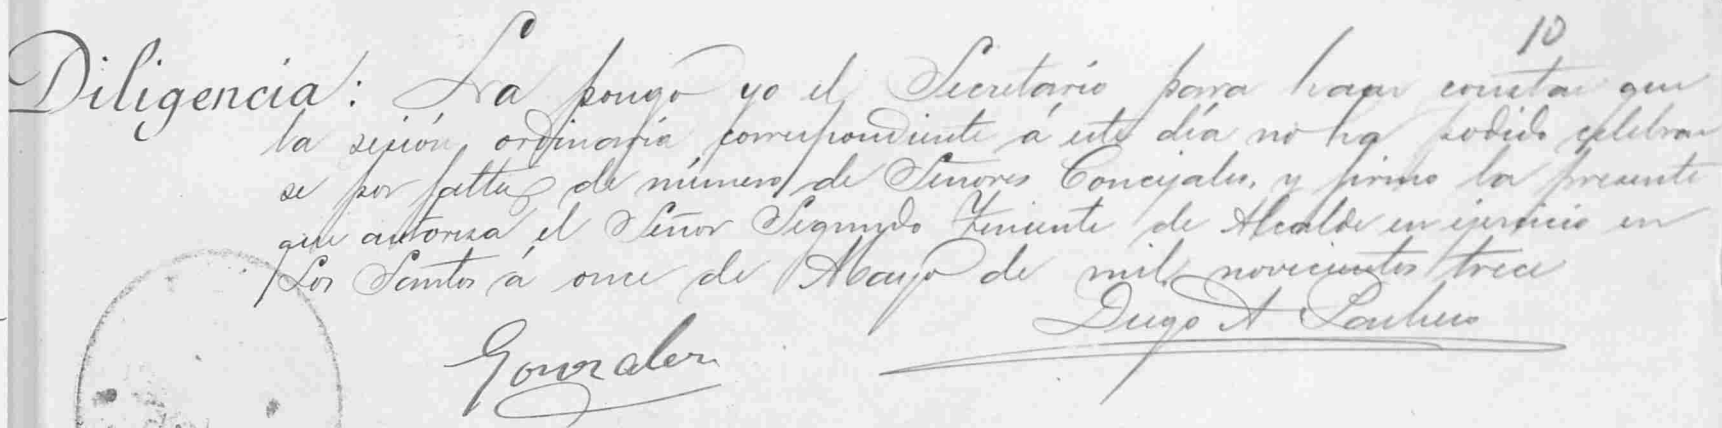 10
Diligencia: La pongo yo el Secretario para hacer constar que
la sesión ordinaria correspondiente á este día no ha podido celebrar
se por falta de número de Señores Concejales, y firmo la presente
que autoriza el Señor Segundo Teniente de Alcalde en ejercicio en
Los Santos á once de Mayo de mil novecientos trece
Diego A
Gonzalez